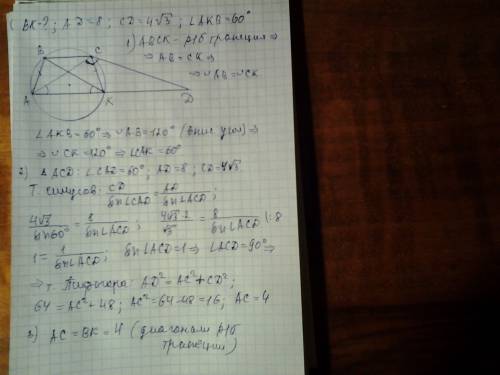 BK-?; AD=8; CD=4√3; ∠AKB=60°
1) ABCK - р/б трапеция ⇒
⇒ AB=CK ⇒
⇒ ∪AB=∪CK
B C
A K D
∠AKB=60° ⇒ ∪AB=120° (впис. угол) ⇒
⇒ ∪CK=120° ⇒ ∠CAK=60°
2) △ACD: ∠CAD=60°; AD=8; CD=4√3
Т. синусов: CD/sin∠CAD = AD/sin∠ACD;
4√3/sin60° = 8/sin∠ACD; 4√3·2/√3 = 8/sin∠ACD |:8
1 = 1/sin∠ACD; sin∠ACD=1 ⇒ ∠ACD=90° ⇒
⇒ т. Пифагора: AD²=AC²+CD²;
64=AC²+48; AC²=64-48=16; AC=4
3) AC=BK=4 (диагонали р/б
трапеции)